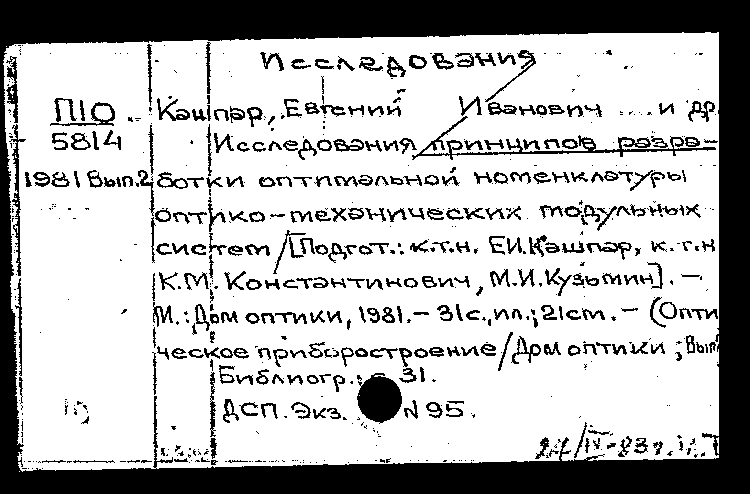 Исследования
П10 Кашпар, Евгений Иванович .... и др.
5814 Исследования принципов разра-
1981 Вып.2 ботки оптимальной номенклатуры
оптико-механических модульных
систем / [Подгот.: к.т.н. Е.И.Кашпар, к.т.н
К.М. Константинович, М.И.Кузьмин]. —
М.: Дом оптики, 1981. — 31с., ил.; 21см. — (Опти
ческое приборостроение / Дом оптики ; Вып
Библиогр.: с. 31.
ДСП. Экз. N 95.
24/IV-83г.